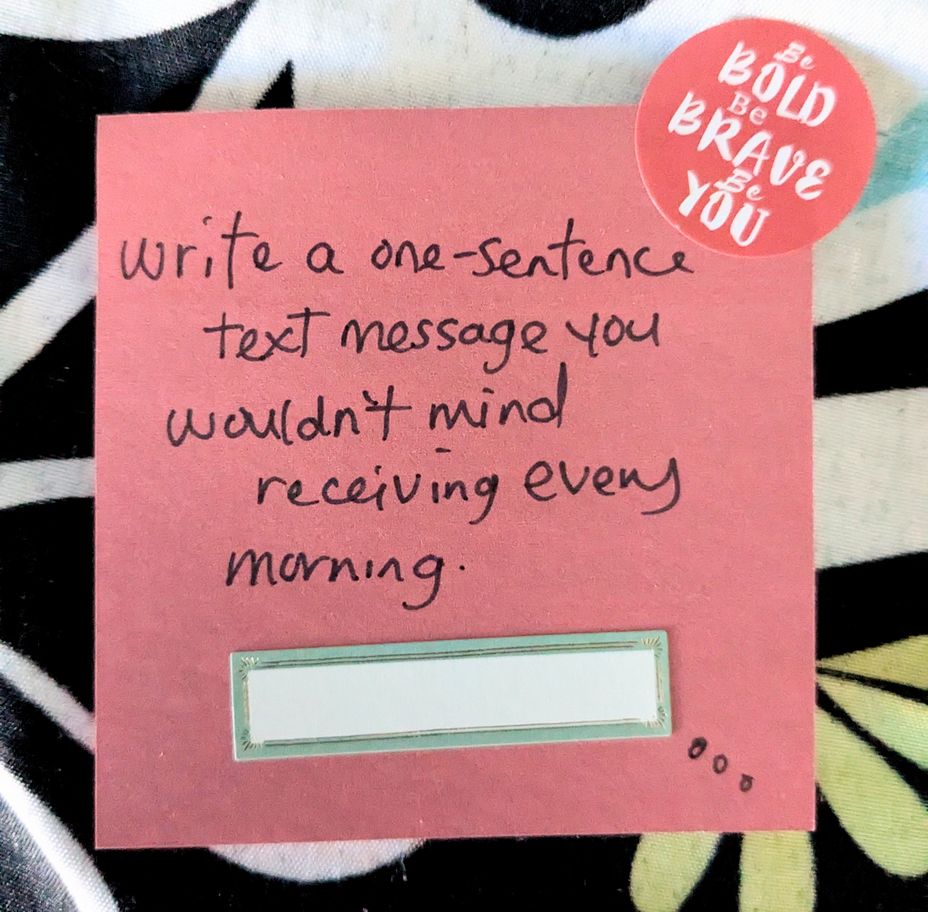 Be
BOLD
Be
BRAVE
Be
YOU
write a one-sentence
text message you
wouldn't mind
receiving every
morning.
...